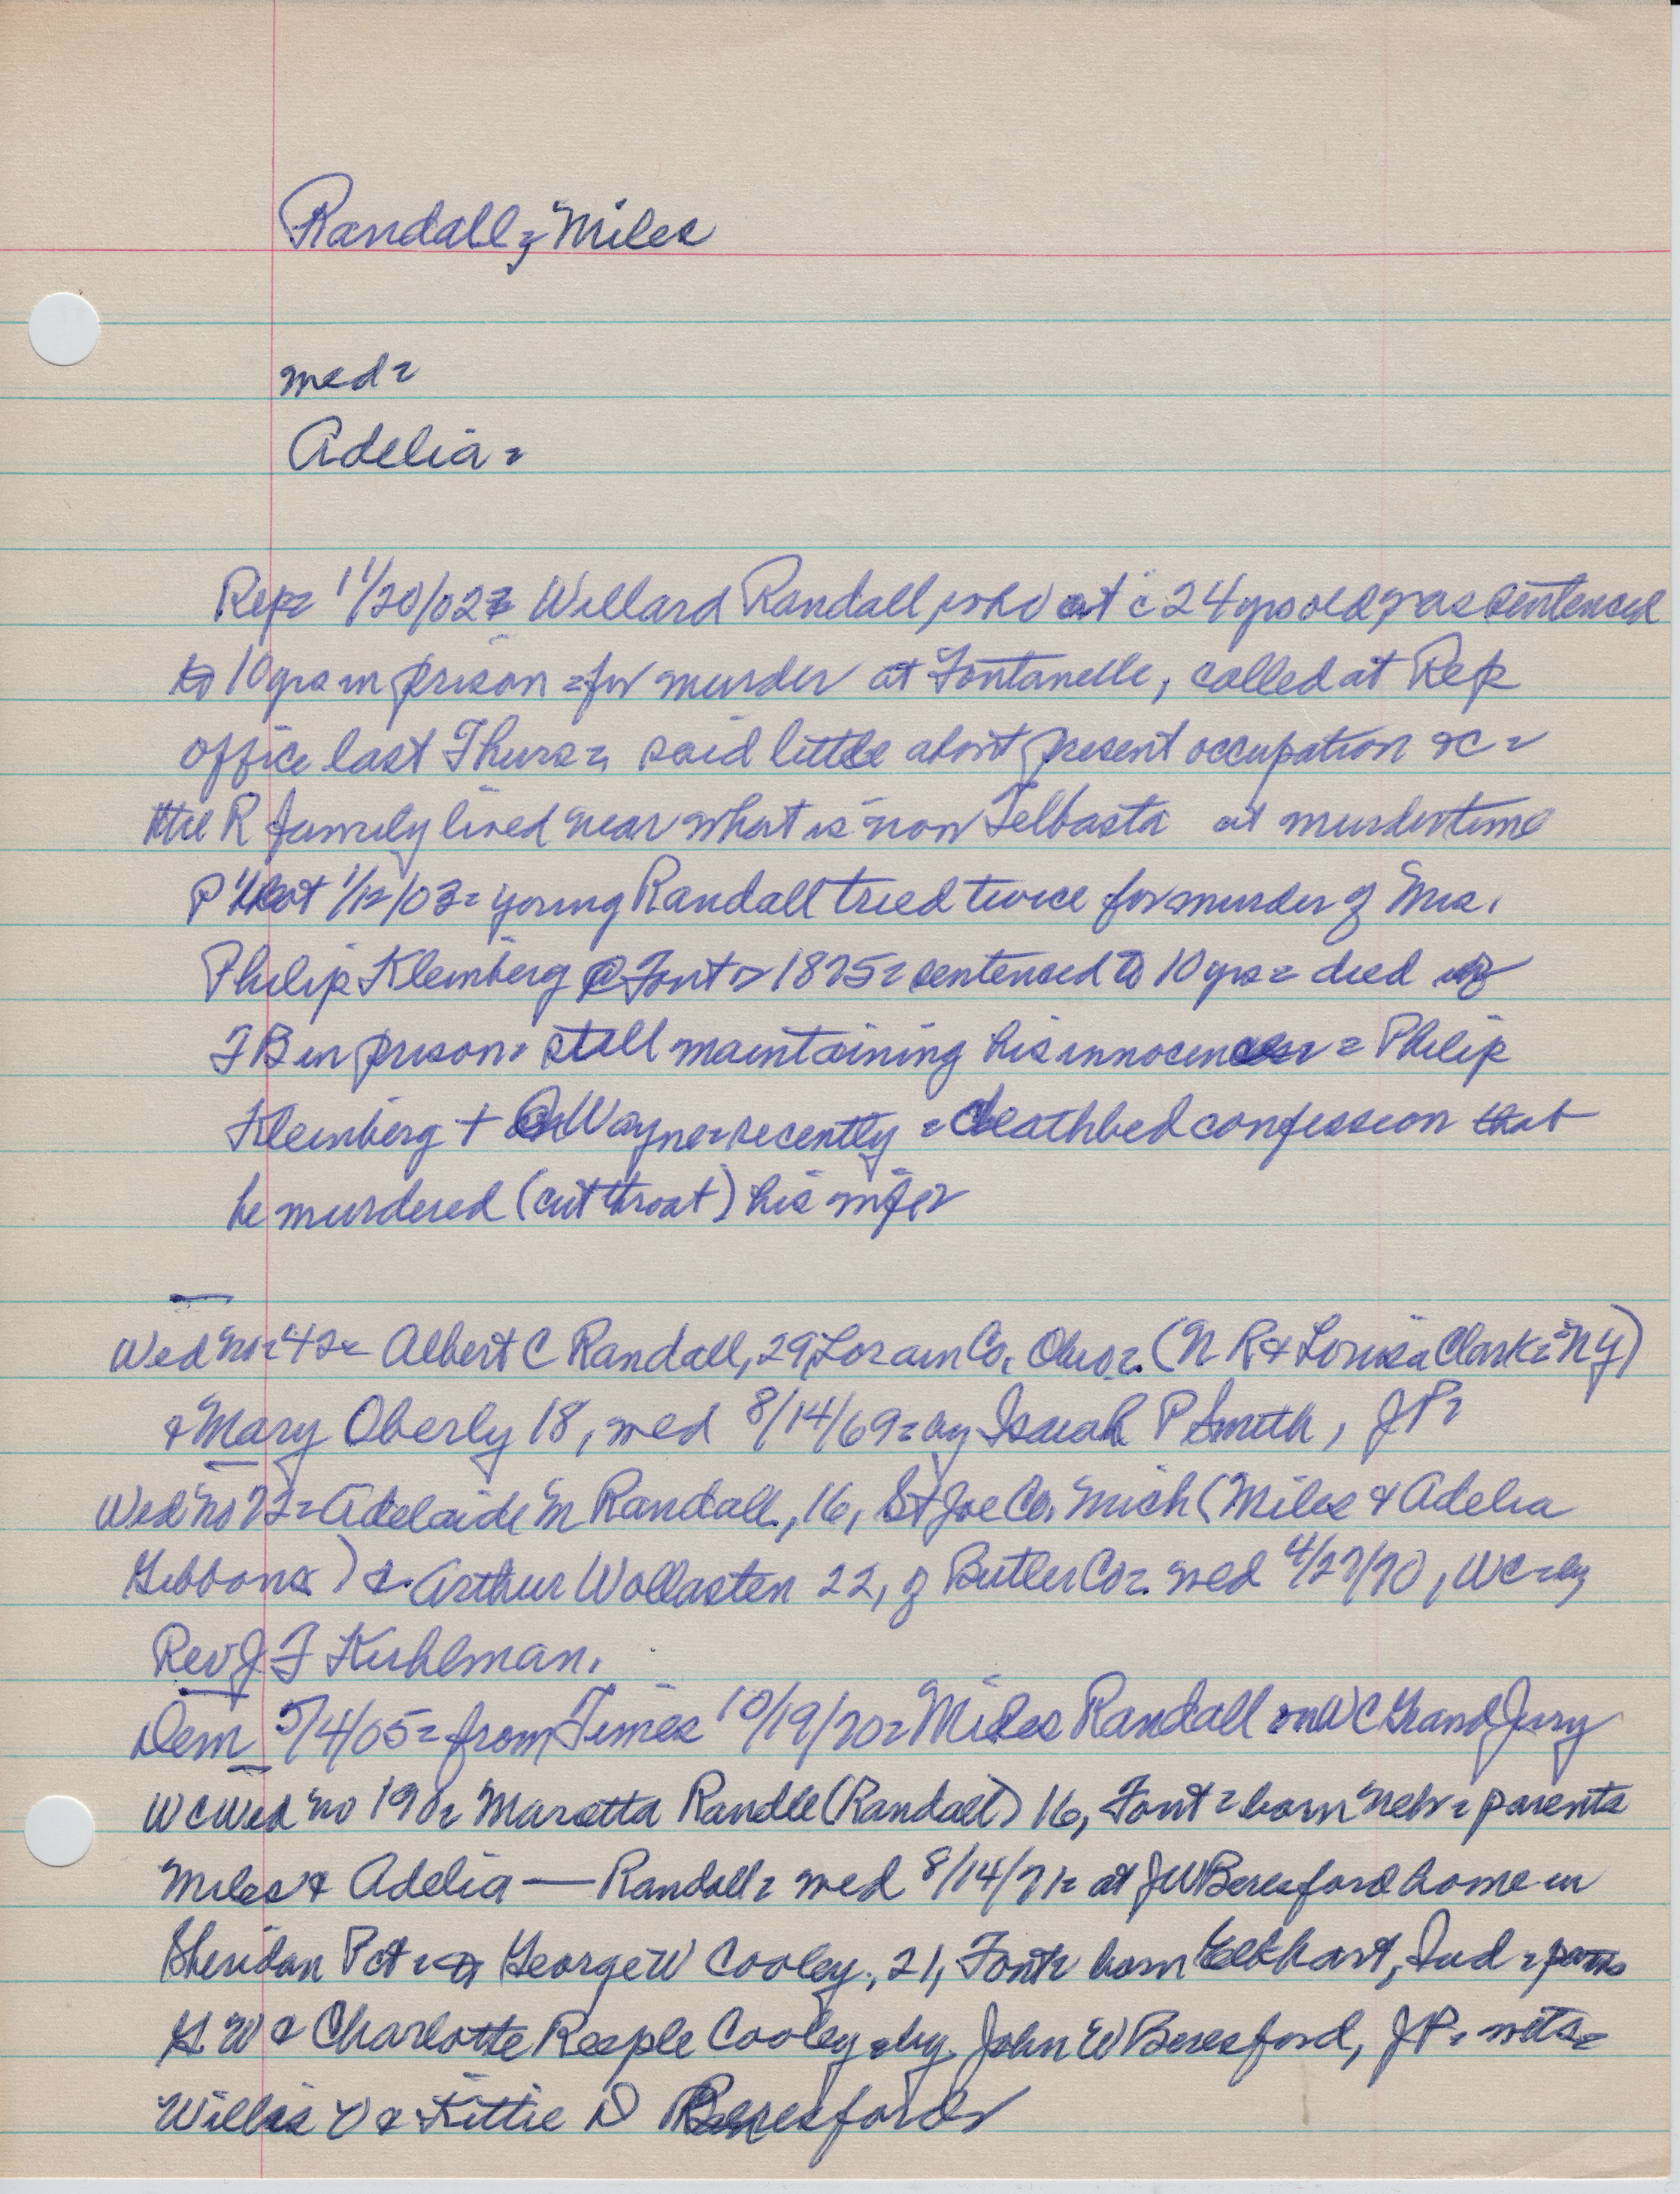 Randall, Miles
med=
Adelia=
Rep= 11/20/02= Willard Randall, who at c 24 yrs old, was sentenced
to 10 yrs in prison = for murder at Fontanelle, called at Rep
office last Thurs=, said little about present occupation &c=
the R family lived near what is now Telbasta at murder time
P 1/12/03= young Randall tried twice for murder of Mrs.
Philip Kleinberg @ Font= 1875= sentenced to 10 yrs= died of
TB in prison= still maintaining his innocence= Philip
Kleinberg + Wayne= recently = deathbed confession that
he murdered (cut throat) his wife=
Wed no= 42= Albert C Randall, 29, Lorain Co, Ohio=. (N R & Louisa Clark= NY)
& Mary Oberly 18, med 8/14/69= by Isaiah P Smith, JP=
Wed no 72= Adelaide M Randall, 16, St Joe Co. Mich (Miles & Adelia
Gibbons) &. Arthur Wollasten 22, of Butler Co=. med 4/27/70, WC= by
Rev J F Kuhlman.
Dem 5/4/05= from Times 10/19/70= Miles Randall on WC Grand Jury
WC Wed no 190= Maretta Randle (Randall) 16, Font= born Neb= parents
Miles & Adelia — Randall= med 8/14/71= at JW Beresford home in
Sheridan Pct= George W Cooley, 21, Font= born Elkhart, Ind= parns
G W & Charlotte Reeple Cooley= by John W Beresford, JP= wits=
Willis V & Kittie D Beresford=